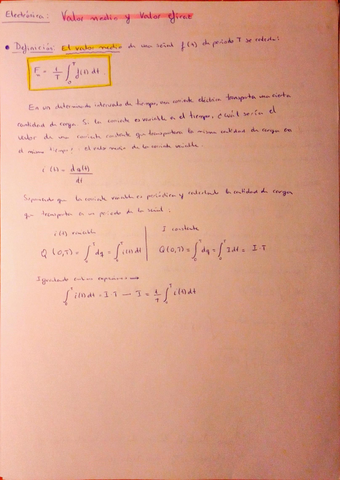 Electrónica: Valor medio y Valor eficaz
• Definición: El valor medio de una señal f(t) de periodo T se calcula:
F = 1/T ∫₀ᵀ f(t) dt
En un determinado intervalo de tiempo, una corriente eléctrica transporta una cierta
cantidad de carga. Si la corriente es variable en el tiempo, ¿cuál sería el
valor de una corriente constante que transportara la misma cantidad de carga en
el mismo tiempo? el valor medio de la corriente variable.
i(t) = dq(t)/dt
que la corriente variable es periódica y calculando la cantidad de carga
que transporta en un periodo de la señal:
i(t) variable | I constante
Q(0,T) = ∫₀ᵀ dq = ∫₀ᵀ i(t) dt | Q(0,T) = ∫₀ᵀ dq = ∫₀ᵀ I dt = I·T
Igualando ambas expresiones:
∫₀ᵀ i(t) dt = I·T → I = 1/T ∫₀ᵀ i(t) dt